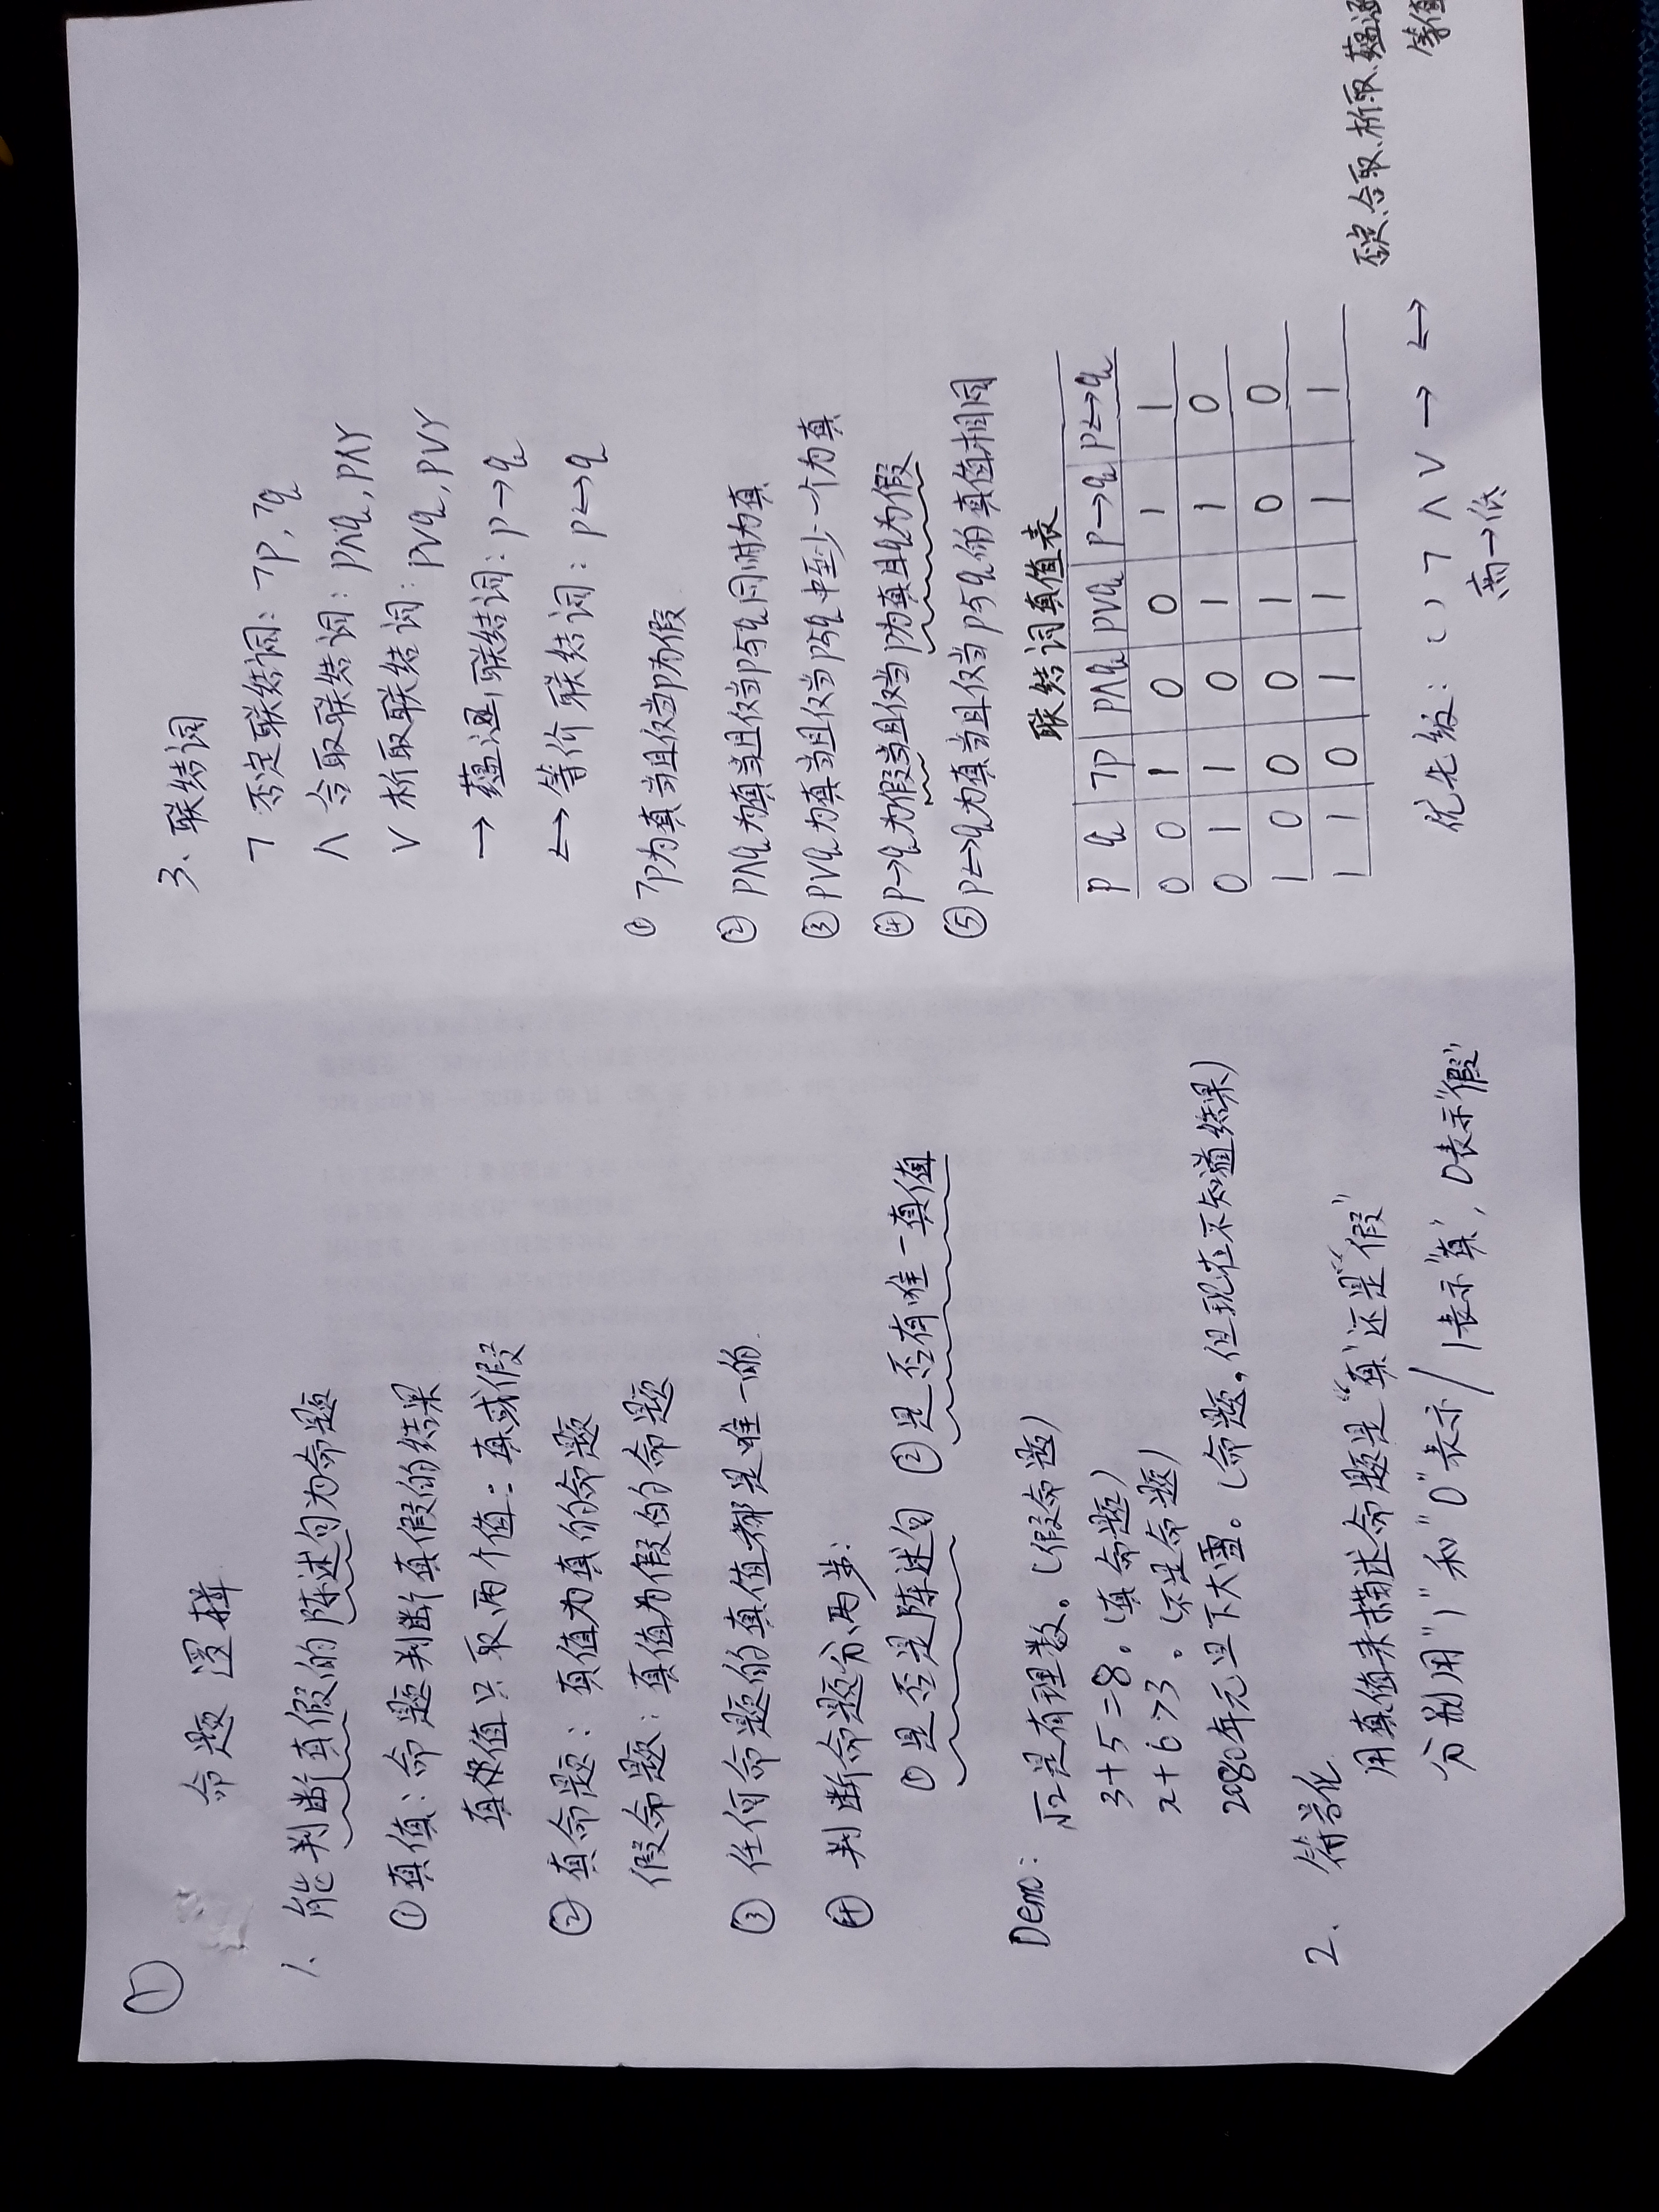 ①
命题逻辑
1、能判断真假的陈述句为命题
①真值：命题判断真假的结果
真值只取两个值：真或假
②真命题：真值为真的命题
假命题：真值为假的命题
③任何命题的真值都是唯一的.
④判断命题分两步：
①是否是陈述句 ②是否有唯一真值
Demo：√2是有理数。（假命题）
3+5=8。（真命题）
x+6>3。（不是命题）
2080年元旦下大雪。（命题，但现在不知道结果）
2、符号化
用真值来描述命题是“真”还是“假”
分别用"1"和"0"表示/1表示"真"，0表示"假"
3、联结词
¬ 否定联结词：¬p,¬q
∧ 合取联结词：p∧q,p∧r
∨ 析取联结词：p∨q,p∨r
→ 蕴涵联结词：p→q
↔ 等价联结词：p↔q
①¬p为真当且仅当p为假
②p∧q为真当且仅当p与q同时为真
③p∨q为真当且仅当p与q中至少一个为真
④p→q为假当且仅当p为真且q为假
⑤p↔q为真当且仅当p与q的真值相同
联结词真值表
p q ¬p p∧q p∨q p→q p↔q
0 0 1 0 0 1 1
0 1 1 0 1 1 0
1 0 0 0 1 0 0
1 1 0 1 1 1 1
否定、合取、析取、蕴涵
等值
优先级：（）¬ ∧ ∨ → ↔
高→低